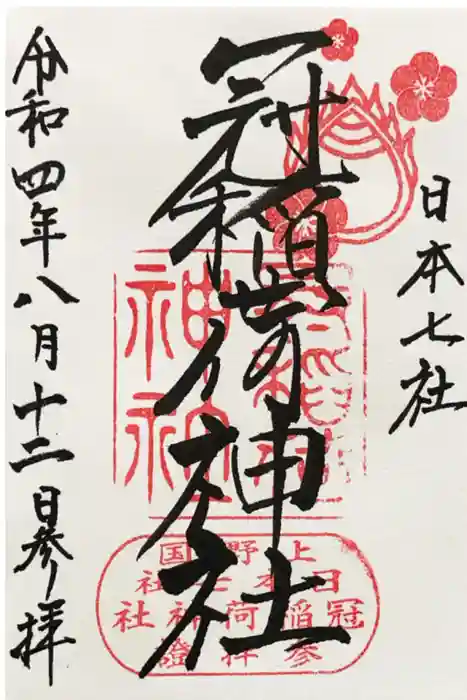 日本七社
冠稲荷神社
令和四年八月十二日参拝
冠稲荷
神社
上野国
日本七社
冠稲荷神社
参拝證